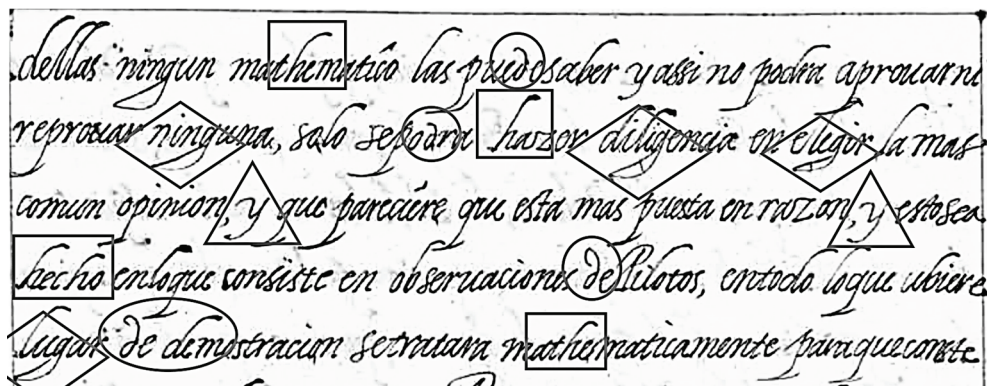 dellas ningun mathematico las puede saber y assi no podra aprouar ni
reprouar ninguna, solo se podra hazer diligencia en elegir la mas
comun opinion, y que pareciere que esta mas puesta en razon, y esto sea
hecho en loque consiste en obseruaciones de Pilotos, entodo loque ubiere
lugar de demostracion setratara mathematicamente paraqueconste